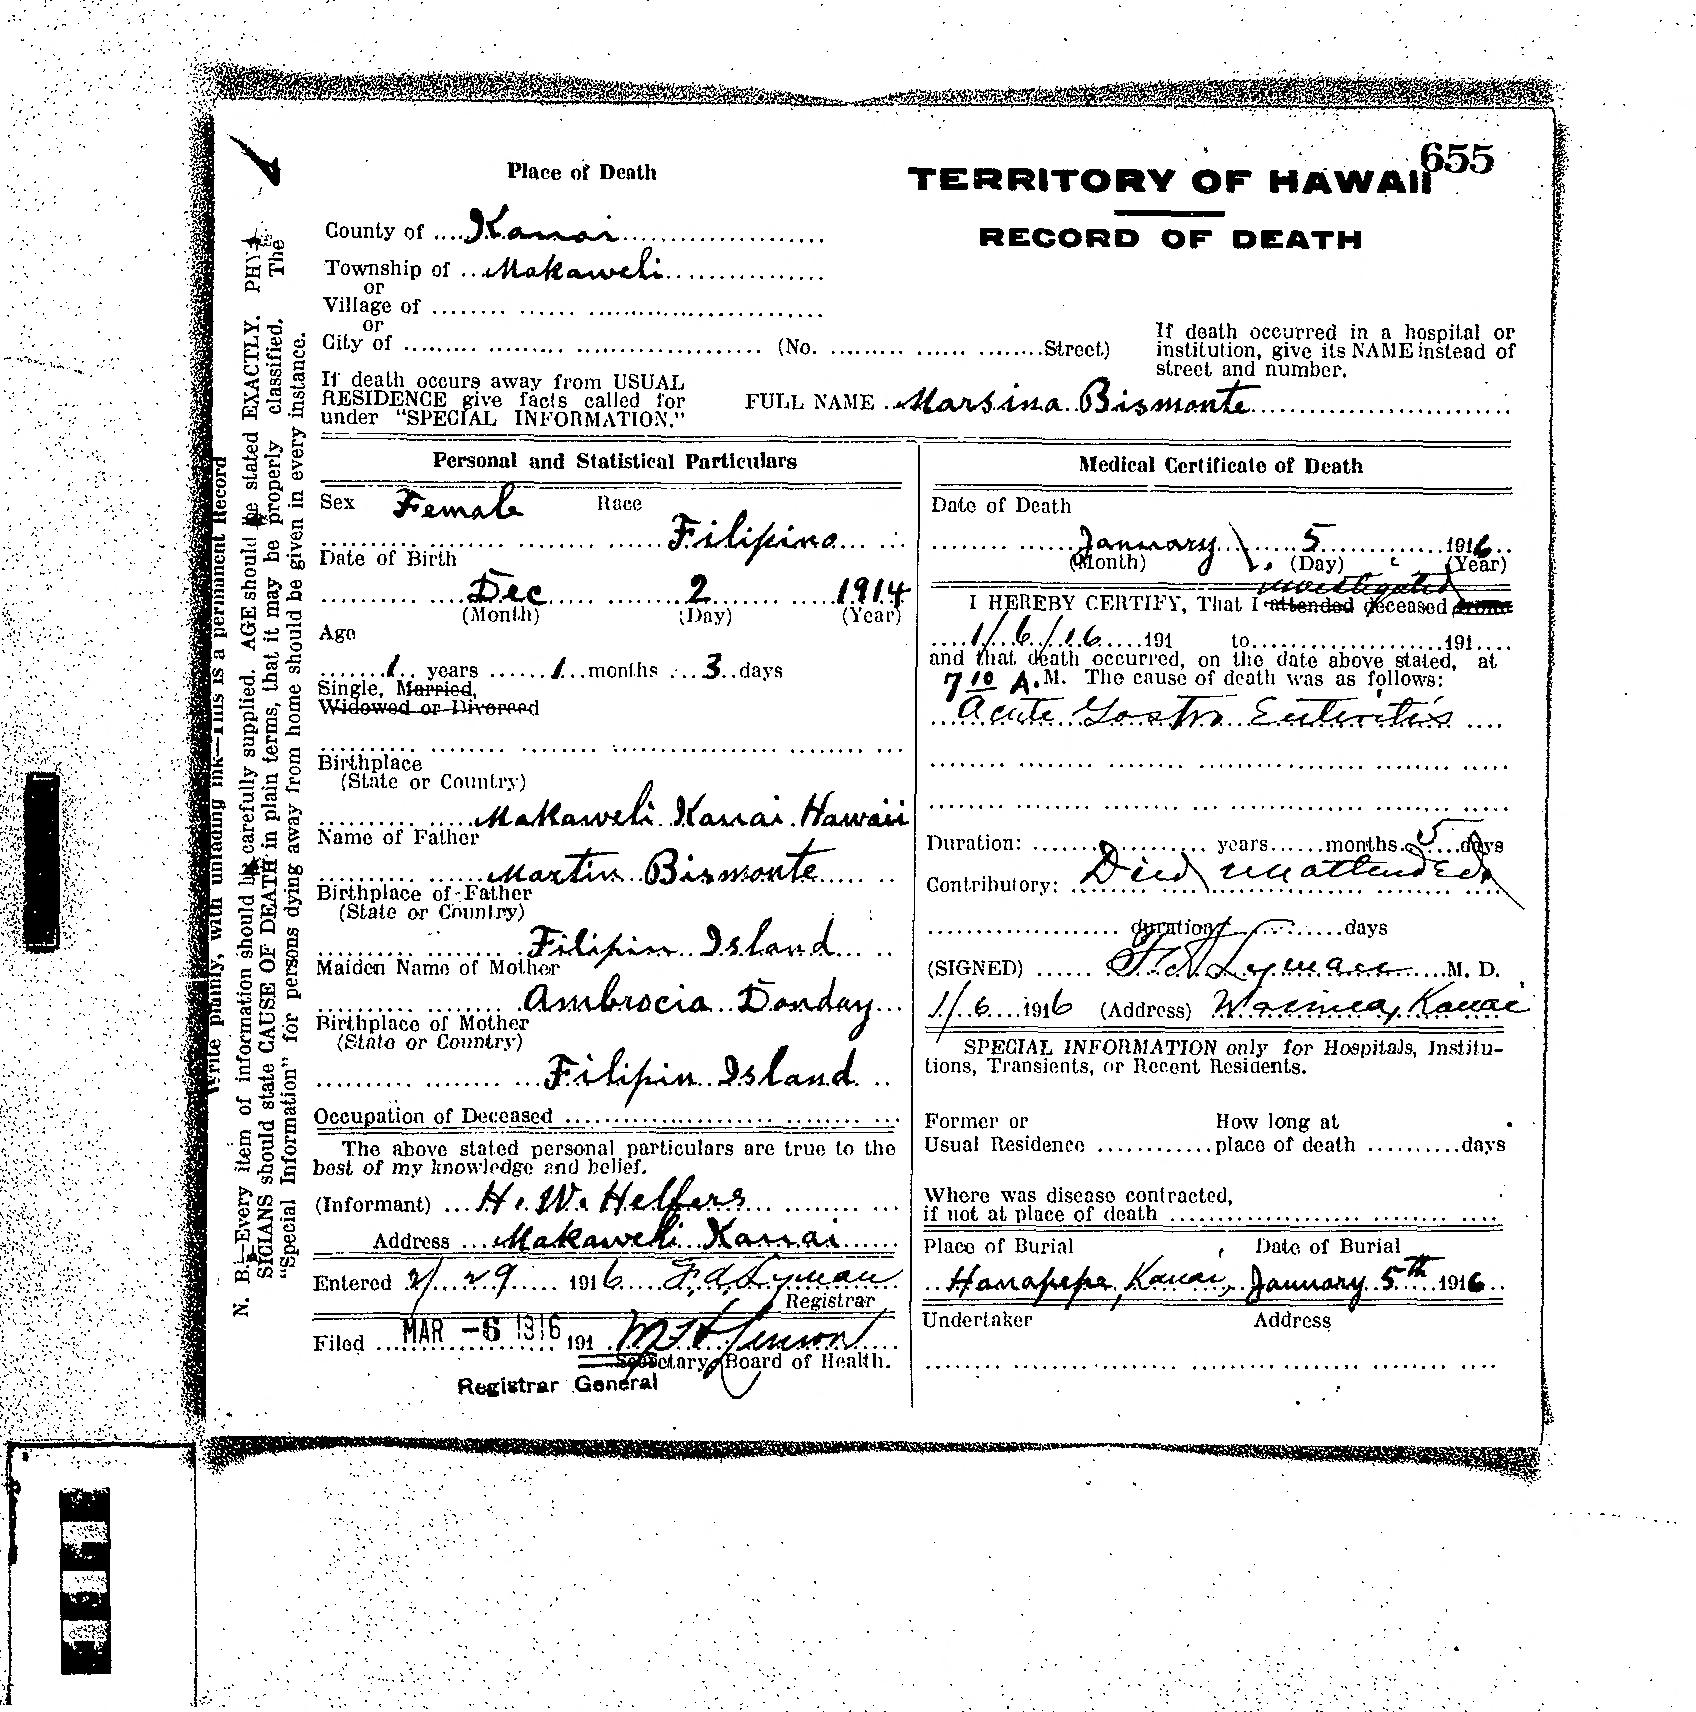 655
Place of Death
TERRITORY OF HAWAII
RECORD OF DEATH
County of Kauai
Township of Makaweli
or
Village of
or
City of (No. Street)
If death occurred in a hospital or
institution, give its NAME instead of
street and number.
If death occurs away from USUAL
RESIDENCE give facts called for
under "SPECIAL INFORMATION."
FULL NAME Marsina Bismonte
Personal and Statistical Particulars
Sex Female Race
Filipino
Date of Birth
Dec 2 1914
(Month) (Day) (Year)
Age
1 years 1 months 3 days
Single, Married,
Widowed or Divorced
Birthplace
(State or Country)
Makaweli Kauai Hawaii
Name of Father
Martin Bismonte
Birthplace of Father
(State or Country)
Filipin Island
Maiden Name of Mother
Ambrocia Donday
Birthplace of Mother
(State or Country)
Filipin Island
Occupation of Deceased
The above stated personal particulars are true to the
best of my knowledge and belief.
(Informant) H. W. Helfers
Address Makaweli Kauai
Entered 2/29 1916 F. A. Lyman
Registrar
Filed MAR -6 1916 191
Secretary, Board of Health.
Registrar General
Medical Certificate of Death
Date of Death
January 5 1916
(Month) (Day) (Year)
investigated
I HEREBY CERTIFY, That I attended deceased from
1/6/16 191 to 191
and that death occurred, on the date above stated, at
7 10 A.M. The cause of death was as follows:
Acute Gastro Enteritis
Duration: years months 5 days
Contributory: Died unattended
duration days
(SIGNED) F. A. Lyman M. D.
1/6 1916 (Address) Waimea, Kauai
SPECIAL INFORMATION only for Hospitals, Institu-
tions, Transients, or Recent Residents.
Former or How long at
Usual Residence place of death days
Where was disease contracted,
if not at place of death
Place of Burial Date of Burial
Hanapepe, Kauai, January 5th 1916
Undertaker Address
Write plainly, with unfading ink—This is a permanent Record
N. B.—Every item of information should be carefully supplied. AGE should be stated EXACTLY. PHY-
SICIANS should state CAUSE OF DEATH in plain terms, that it may be properly classified. The
"Special Information" for persons dying away from home should be given in every instance.